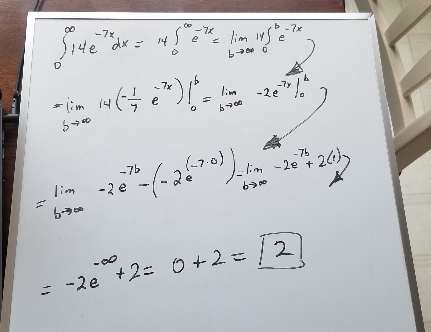 ∫₀^∞ 14e^(-7x) dx = 14 ∫₀^∞ e^(-7x) = lim b→∞ 14 ∫₀^b e^(-7x)
= lim b→∞ 14(-1/7 e^(-7x)) |₀^b = lim b→∞ -2e^(-7x) |₀^b
= lim b→∞ -2e^(-7b) - (-2e^(-7·0)) = lim b→∞ -2e^(-7b) + 2(1)
= -2e^(-∞) + 2 = 0 + 2 = 2